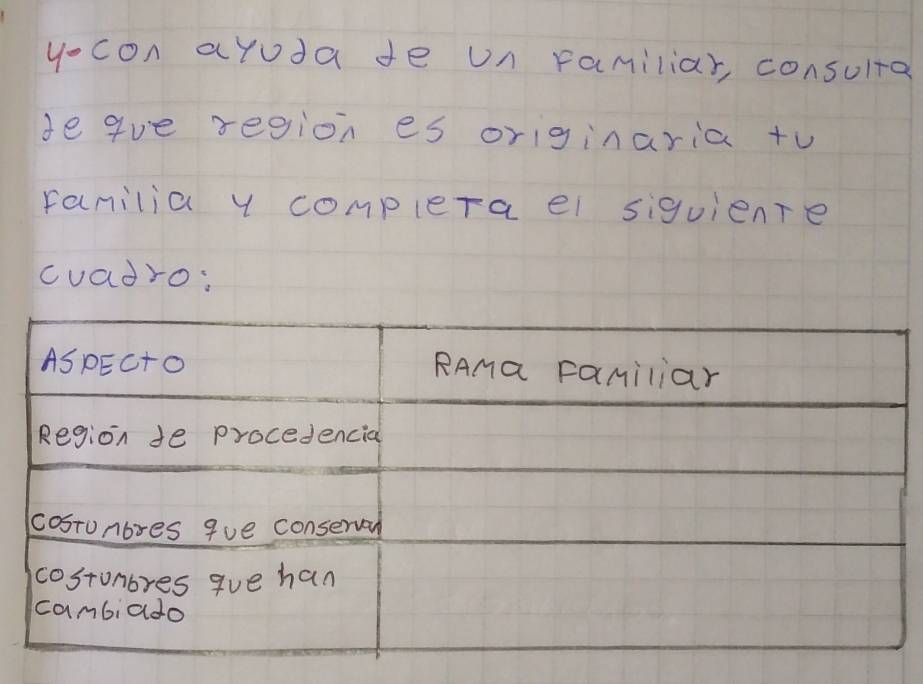 4-con ayuda de un familiar, consulta
de que región es originaria tu
familia y completa el siguiente
cuadro:
ASPECTO RAMA Familiar
Región de procedencia
costumbres que conservan
costumbres que han
cambiado